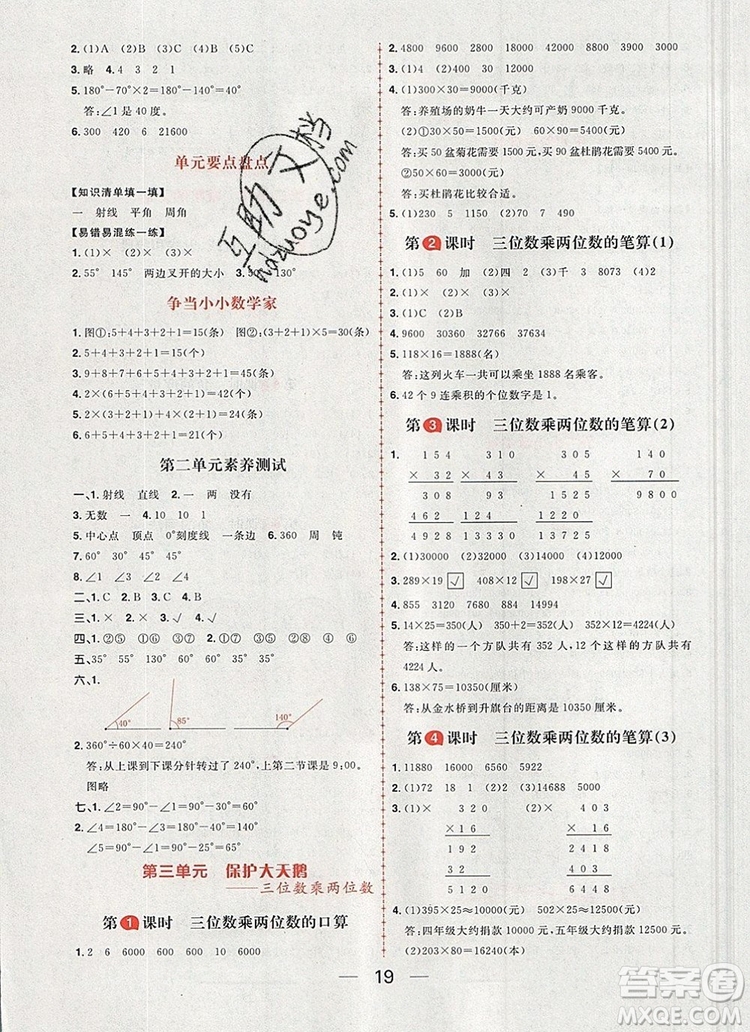 2.(1)A　(2)B　(3)C　(4)A　(5)B
3.略　4.4　3　2　1
5.180°－70°×2＝40°
答:∠1 是 40度。
6.300　420　6　21600
单元要点盘点
【知识清单填一填】
一　射线　平角　周角
【易错易混练一练】
1.(1)×　(2)×　(3)×
2.55°　145°　两边叉开的大小　3.
争当小小数学家
1.图①:5＋4＋3＋2＋1＝15(条)　图②:(3＋2＋1)×5＝30(条)
2.5＋4＋3＋2＋1＝15(个)
4.2×(6＋5＋4＋3＋2＋1)＝42(个)
6.6＋5＋4＋3＋2＋1＝21(个)
第二单元素养测试
一、1.射线　直线　2.一　两　没有
3.无数　一　4.10　10　1
5.中心点　顶点　0°刻度线　一条边　6.360　周　钝
7.60°　30°　45°　45°
8.∠1　∠2　∠1　∠4
二、1.C　2.B　三、1.×　2.×　3.√　4.√
四、1.②⑤　①⑥　2.√　√　3.②⑤　①③④　⑥
五、35°　35°　45°　45°
六、1.
40°　85°　140°
2.360°÷60×40＝240°
答:从上课到下课分针转过了240°,第二节课上课是 9:00。
图略
七、1.∠2＝90°－30°＝60°
2.∠4＝180°－90°－55°＝35°
∠5＝180°－∠4＝180°－35°＝145°
第三单元　保护大天鹅
——三位数乘两位数
第1课时　三位数乘两位数的口算
1.2　6　6000　600　600　6000
2.4800　9600　5600　5700　900　880
3.(1)4　(2)400　(3)40
4.(1)300×30＝9000(千克)
答:养殖场的奶牛一天大约可产奶 9000 千克。
(2)①50×30＝1500(元)
90×50＝4500(元)
答:买 50 盆菊花需要 1500 元,买 90 盆杜鹃花需要 4500 元。
②50＜60
答:买杜鹃花比较合适。
5.(1)230　5　(2)1150　(3)110
第2课时　三位数乘两位数的笔算(1)
1.(1)5　60　加　(2)四　2　(3)1　0
2.(1)B　(2)C
4.9600　10309　8032　37634
5.118×16＝1888(名)
答:这列火车一共可以乘坐 1888 名乘客。
6.42 个 9 连乘积的个位数字是 1。
第3课时　三位数乘两位数的笔算(2)
1.　154　310　305　140
×　32　×　43　×　45　×　70
308　930　1525　9800
462　124　1220
4928　13330　13725
2.(1)30000　(2)4　(3)14000
3.289×19 √　408×12 √　198×27 √
4.855　3120　7680　8694
5.14×25＝350(人)　352×12＝4224(人)
答:这样的一个方队大约有 350 人,12 个这样的方队共有
4224 人。
6.138×75＝10350(厘米)
答:从金水桥到升旗台的距离是 10350 厘米。
第4课时　三位数乘两位数的笔算(3)
1.11880　16000　6560　5922
2.(1)72　18　1　(2)14688　57000
3.(1)×　320　(2)×　403
×　16　×　16
192　2418
32　403
5120　6448
4.(1)395×25≈10000(元)　502×25≈12500(元)
答:四年级大约捐款 10000元,五年级大约捐款 12500元。
(2)203×80＝16240(本)
19
互助文档
hdzuoye.com
答案圈
MXQE.COM